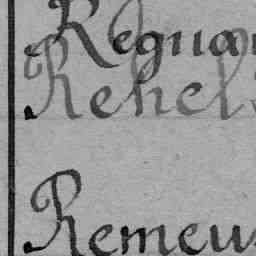 Regna
Rehel
Remeu